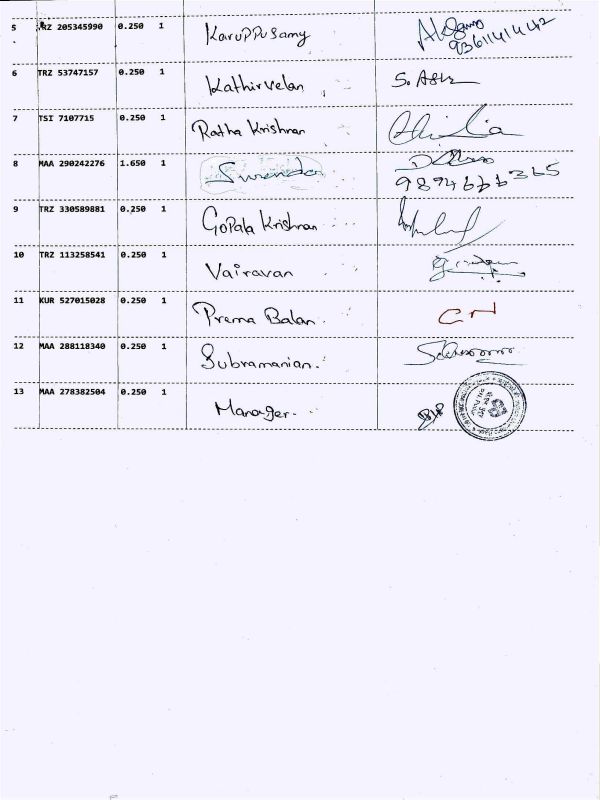 5 TRZ 205345990 0.250 1 Karuppusamy
9361141442
6 TRZ 53747157 0.250 1 Kathirvelan S. Asir
7 TSI 7107715 0.250 1 Ratha Krishnan
8 MAA 290242276 1.650 1 Surendar
9894666365
9 TRZ 330589881 0.250 1 Gopala Krishnan
10 TRZ 113258541 0.250 1 Vairavan
11 KUR 527015028 0.250 1 Prema Balan. CN
12 MAA 288118340 0.250 1 Subramanian.
13 MAA 278382504 0.250 1 Manager.